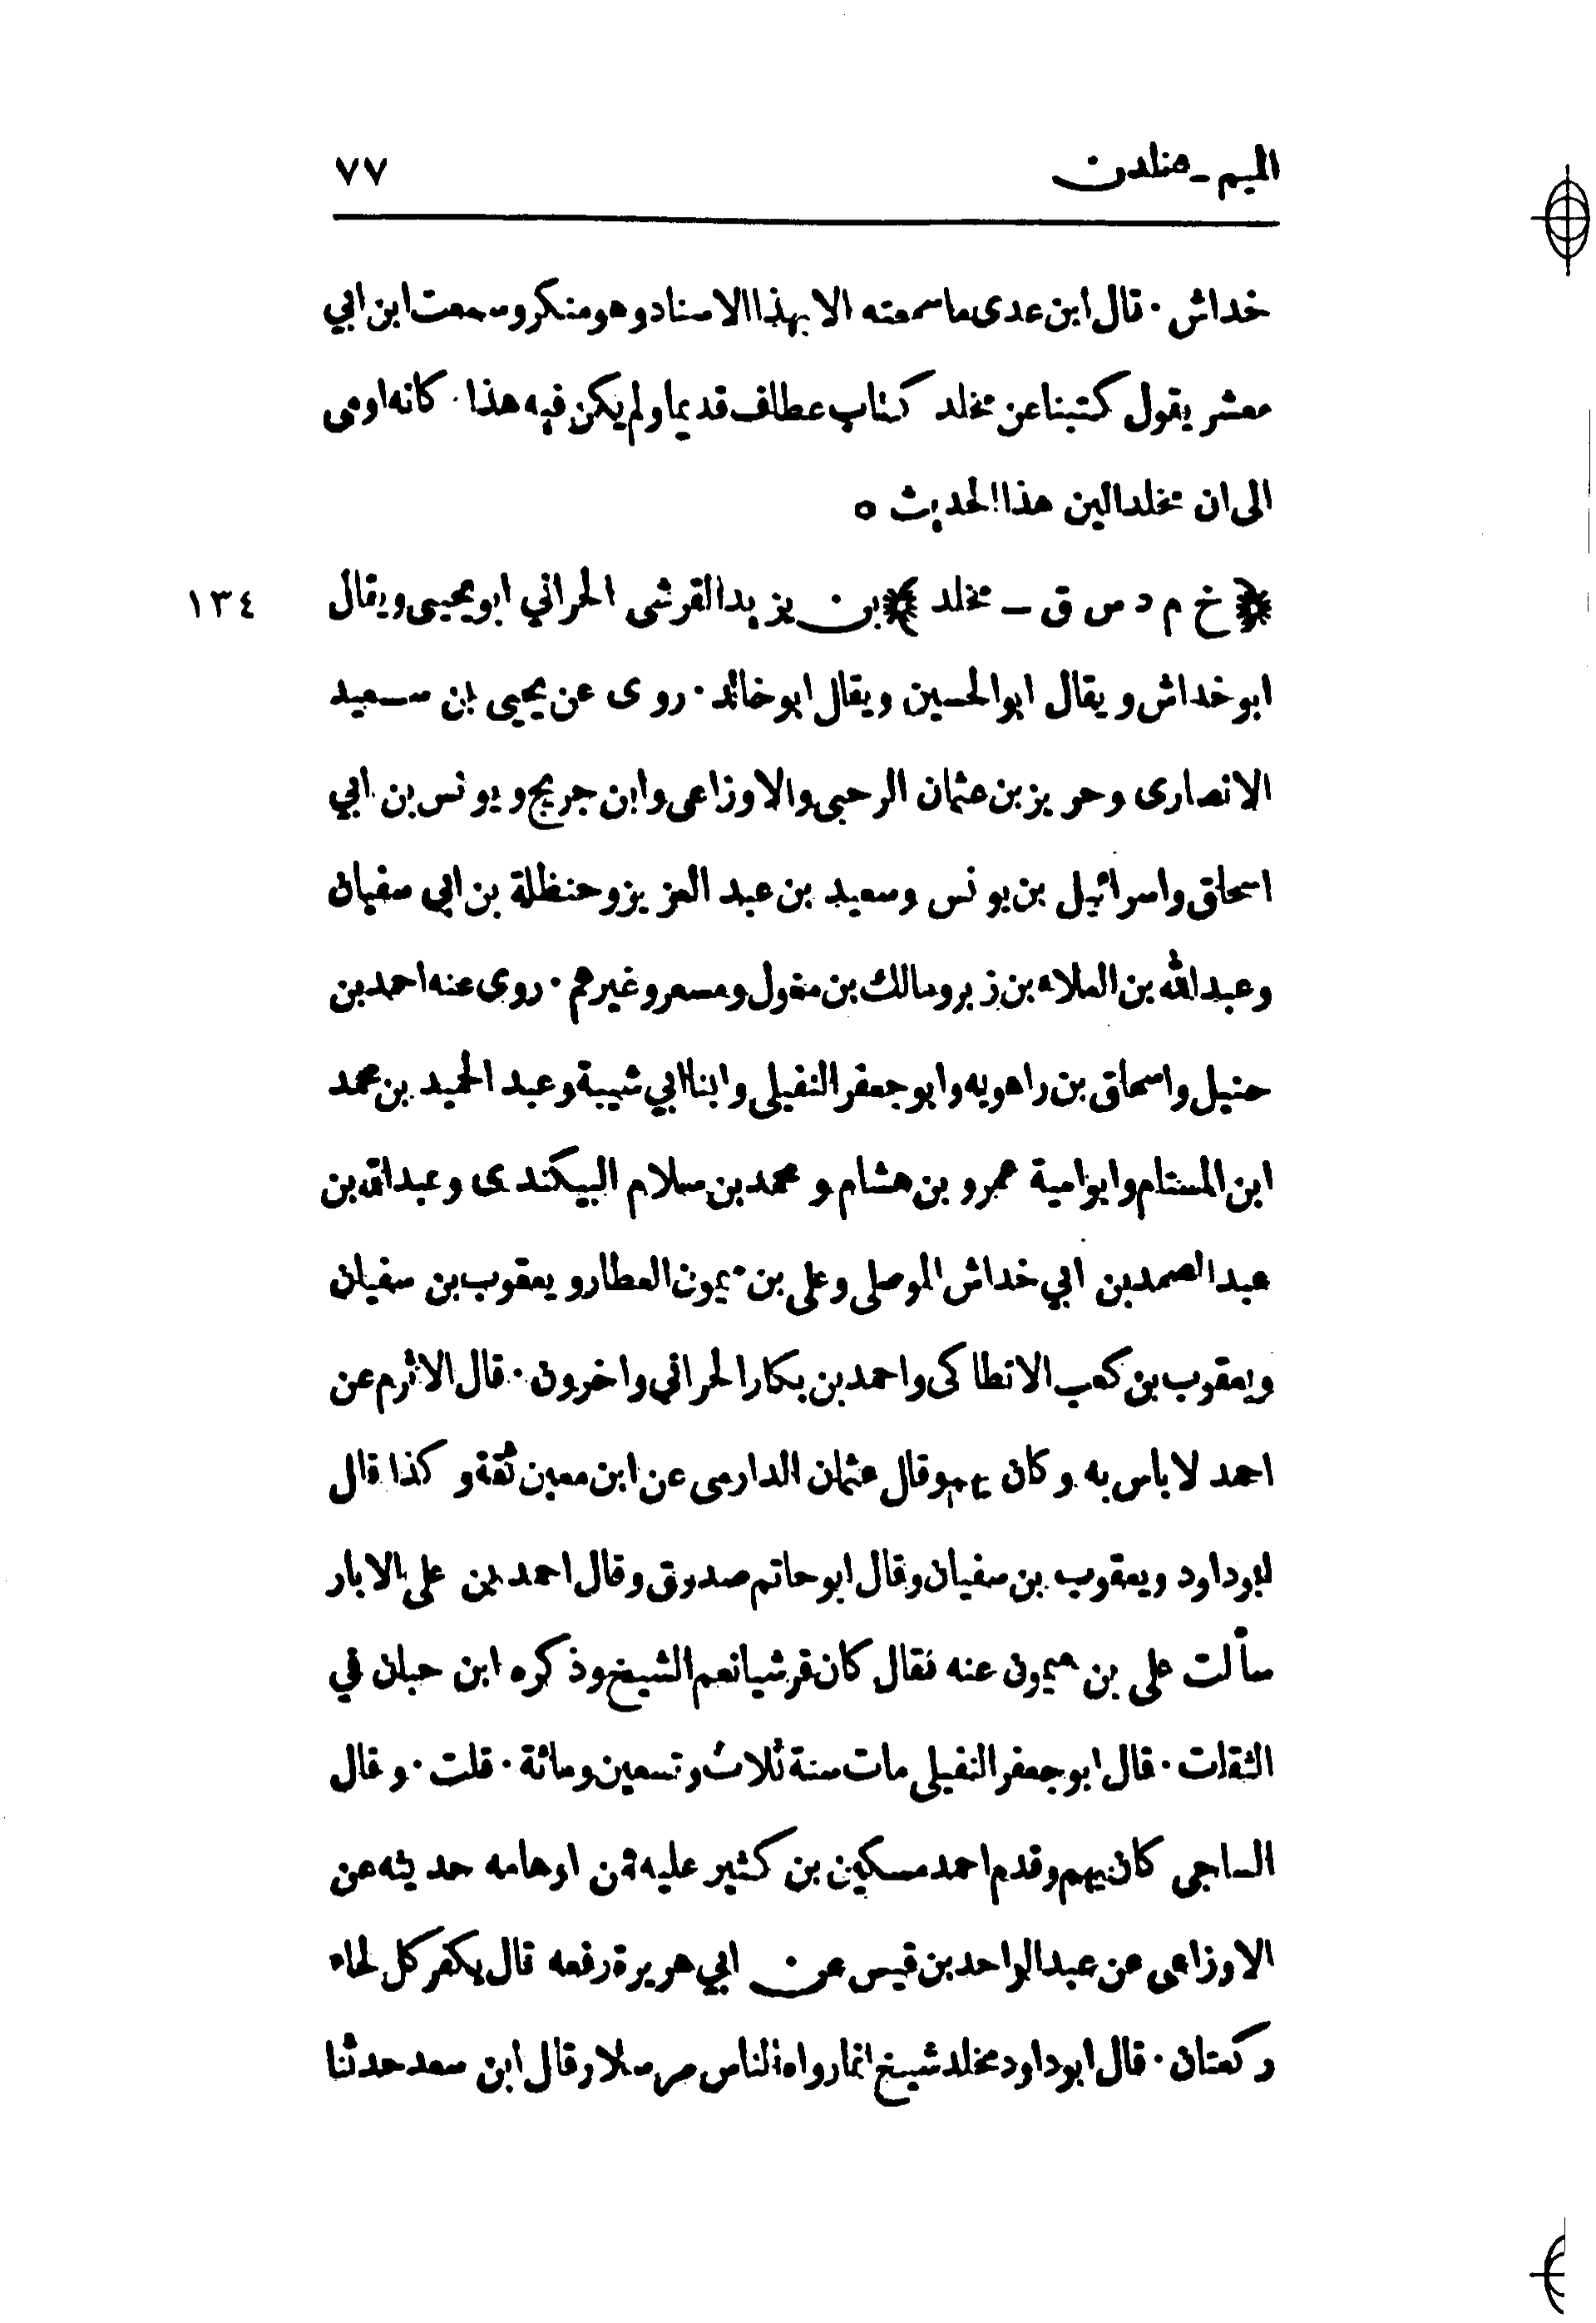 الميم - مخلد بن
٧٧
خداش · قال ابن عدى ما سمعته الا بهذا الاسناد وهو منكر وسمعت ابن ابي
معشر يقول كتبنا عن مخلد كتاب عطاف قديما ولم يكن فيه هذا · كانه اومى
الى ان مخلدا لين هذا الحديث ٥
﴿ خ م د س ق - مخلد ﴾ بن يزيد القرشى الحراني ابو يحيى ويقال
١٣٤
ابو خداش ويقال ابو الحسين ويقال ابو خالد · روى عن يحيى بن سعيد
الانصارى وحريز بن عثمان الرحبى والاوزاعى وابن جريج ويونس بن ابي
اسحاق واسرائيل بن يونس وسعيد بن عبد العزيز وحنظلة بن ابى سفيان
وعبد الله بن العلاء بن زبر ومالك بن مغول ومسعر وغيرهم · روى عنه احمد بن
حنبل واسحاق بن راهويه وابو جعفر النفيلى وابنا ابي شيبة وعبد الحميد بن محمد
ابن المستام وابو امية عمرو بن هشام و محمد بن سلام البيكندى وعبد الله بن
عبد الصمد بن ابي خداش الموصلى وعلى بن ميمون العطار ويعقوب بن سفيان
ويعقوب بن كعب الانطاكى واحمد بن بكار الحراني واخرون · قال الاثرم عن
احمد لا باس به وكان يهم وقال عثمان الدارمى عن ابن معين ثقة وكذا قال
ابو داود ويعقوب بن سفيان وقال ابو حاتم صدوق وقال احمد بن على الابار
سألت على بن ميمون عنه فقال كان قرشيا نعم الشيخ وذكره ابن حبان في
الثقات · قال ابو جعفر النفيلى مات سنة ثلاث وتسعين ومائة · قلت · وقال
الساجى كان يهم وقدم احمد مسكين بن كثير عليه فمن اوهامه حديثه عن
الاوزاعى عن عبد الواحد بن قيس عن ابي هريرة رفعه قال يكفر كل لحاء
ركعتان · قال ابو داود مخلد شيخ انما رواه الناس مرسلا وقال ابن سعد حدثنا